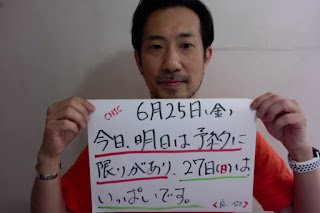 CHIC
6月25日(金)
今日、明日は予約に
限りがあり、27日(日)は
いっぱいです。